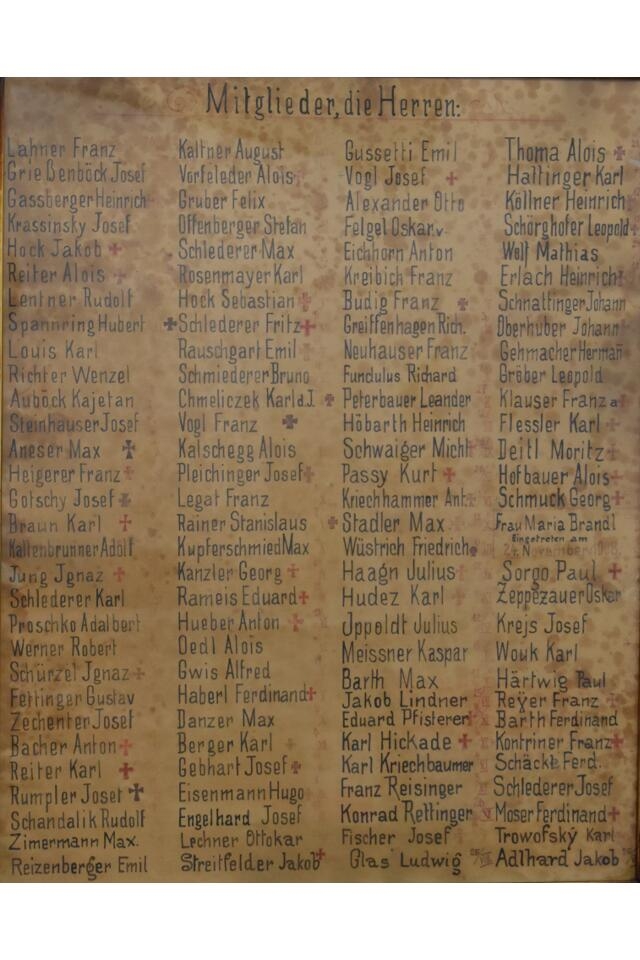 Mitglieder, die Herren:
Lahner Franz
Grießenböck Josef
Gassberger Heinrich
Krassinsky Josef
Hock Jakob
Reiter Alois
Lentner Rudolf
Spannring Hubert
Louis Karl
Richter Wenzel
Auböck Kajetan
Steinhauser Josef
Aneser Max
Heigerer Franz
Gotschy Josef
Braun Karl
Kaltenbrunner Adolf
Jung Jgnaz
Schlederer Karl
Proschko Adalbert
Werner Robert
Schürzel Jgnaz
Fettinger Gustav
Zechenter Josef
Bacher Anton
Reiter Karl
Rumpler Josef
Schandalik Rudolf
Zimermann Max.
Reizenberger Emil
Kaltner August
Vorfeleder Alois
Gruber Felix
Offenberger Stefan
Schlederer Max
Rosenmayer Karl
Hock Sebastian
Schlederer Fritz
Rauschgart Emil
Schmiederer Bruno
Chmeliczek Karl d.J.
Vogl Franz
Kalschegg Alois
Pleichinger Josef
Legat Franz
Rainer Stanislaus
Kupferschmied Max
Kanzler Georg
Rameis Eduard
Hueber Anton
Oedl Alois
Gwis Alfred
Haberl Ferdinand
Danzer Max
Berger Karl
Gebhart Josef
Eisenmann Hugo
Engelhard Josef
Lechner Ottokar
Streitfelder Jakob
Gussetti Emil
Vogl Josef
Alexander Otto
Felgel Oskar v.
Eichhorn Anton
Kreibich Franz
Budig Franz
Greiffenhagen Rich.
Neuhauser Franz
Fundulus Richard
Peterbauer Leander
Höbarth Heinrich
Schwaiger Michl
Passy Kurt
Kriechhammer Ant.
Stadler Max
Wüstrich Friedrich
Haagn Julius
Hudez Karl
Jppoldt Julius
Meissner Kaspar
Barth Max
Jakob Lindner
Eduard Pfisterer
Karl Hickade
Karl Kriechbaumer
Franz Reisinger
Konrad Rettinger
Fischer Josef
Glas Ludwig
Thoma Alois
Hattinger Karl
Köllner Heinrich
Schörghofer Leopold
Wolf Mathias
Erlach Heinrich
Schnaitinger Johann
Oberhuber Johann
Gehmacher Hermañ
Gröber Leopold
Klauser Franz
Flessler Karl
Deitl Moritz
Hofbauer Alois
Schmuck Georg
Frau Maria Brandl
Eingetreten am
November
Sorgo Paul
Zeppezauer Oskar
Krejs Josef
Wouk Karl
Härtwig Paul
Reyer Franz
Barth Ferdinand
Kontriner Franz
Schäckt Ferd.
Schlederer Josef
Moser Ferdinand
Trowofský Karl
Adlhard Jakob